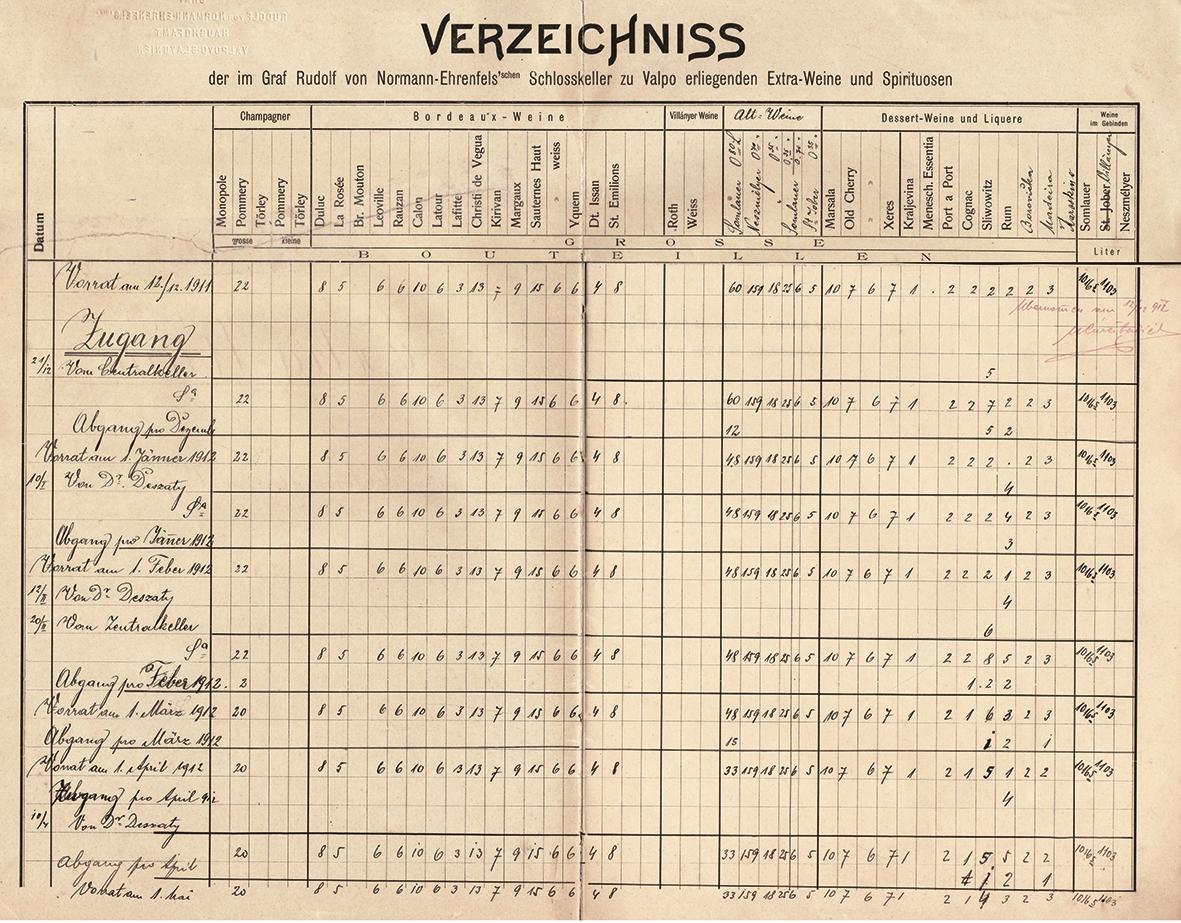 VERZEICHNISS
der im Graf Rudolf von Normann-Ehrenfels'schen Schlosskeller zu Valpo erliegenden Extra-Weine und Spirituosen
Datum
Champagner
Bordeaux-Weine
Villányer Weine
Alt-Weine
Dessert-Weine und Liquere
Weine im Gebinden
Monopole
Pommery
Törley
Pommery
Törley
Duluc
La Rosée
Br. Mouton
Leoville
Rauzan
Calon
Latour
Lafitte
Christi de Vegua
Kirvan
Margaux
Sauternes Haut
" weiss
Yquem
Dt. Issan
St. Emilions
Roth
Weiss
Somlauer
Neszmélyer
Somlauer
St. Jober
Marsala
Old Cherry
"
Xeres
Kraljevina
Menesch. Essentia
Port a Port
Cognac
Sliwowitz
Rum
Borovička
Madeira
Maraskino
Somlauer
St. Jober Villányer
Neszmdyer
grosse kleine
GROSSE
BOUTEILLEN
Liter
Vorrat am 12./12. 1911 22 8 5 6 6 10 6 3 13 7 9 15 6 6 4 8 60 159 18 25 6 5 10 7 6 7 1 . 2 2 2 2 2 3 1016.5 1103
Zugang
21/12 Vom Centralkeller 5
Sa 22 8 5 6 6 10 6 3 13 7 9 15 6 6 4 8 60 159 18 25 6 5 10 7 6 7 1 2 2 7 2 2 3 1016.5 1103
Abgang pro Dezemb 12 5 2
Vorrat am 1. Jänner 1912 22 8 5 6 6 10 6 3 13 7 9 15 6 6 4 8 48 159 18 25 6 5 10 7 6 7 1 2 2 2 . 2 3 1016.5 1103
10/I Von Dr. Deszaty 4
Sa 22 8 5 6 6 10 6 3 13 7 9 15 6 6 4 8 48 159 18 25 6 5 10 7 6 7 1 2 2 2 4 2 3 1016.5 1103
Abgang pro Jäner 1912 3
Vorrat am 1. Feber 1912 22 8 5 6 6 10 6 3 13 7 9 15 6 6 4 8 48 159 18 25 6 5 10 7 6 7 1 2 2 2 1 2 3 1016.5 1103
12/II Von Dr Deszaty 4
20/II Vom Zentralkeller 6
Sa 22 8 5 6 6 10 6 3 13 7 9 15 6 6 4 8 48 159 18 25 6 5 10 7 6 7 1 2 2 8 5 2 3 1016.5 1103
Abgang pro Feber 1912. 2 1 . 2 2
Vorrat am 1. März 1912 20 8 5 6 6 10 6 3 13 7 9 15 6 6 4 8 48 159 18 25 6 5 10 7 6 7 1 2 1 6 3 2 3 1016.5 1103
Abgang pro März 1912 15 1 2 1
Vorrat am 1. April 1912 20 8 5 6 6 10 6 3 13 7 9 15 6 6 4 8 33 159 18 25 6 5 10 7 6 7 1 2 1 5 1 2 2 1016.5 1103
Zugang pro April 912 4
10/4 Von Dr Deszaty
20 8 5 6 6 10 6 3 13 7 9 15 6 6 4 8 33 159 18 25 6 5 10 7 6 7 1 2 1 5 5 2 2 1016.5 1103
Abgang pro April 1 2 1
Vorrat am 1. Mai 20 8 5 6 6 10 6 3 13 7 9 15 6 6 4 8 33 159 18 25 6 5 10 7 6 7 1 2 1 4 3 2 3 1016.5 1103